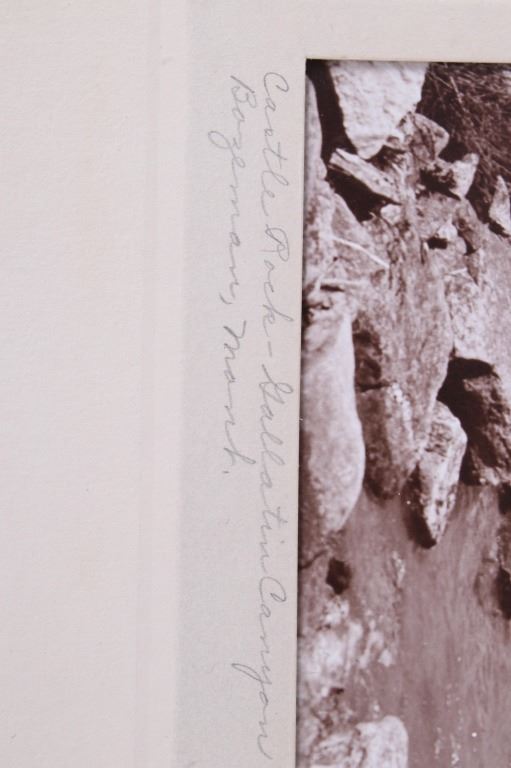 Castle Rock - Gallatin Canyon
Bozeman, Mont.